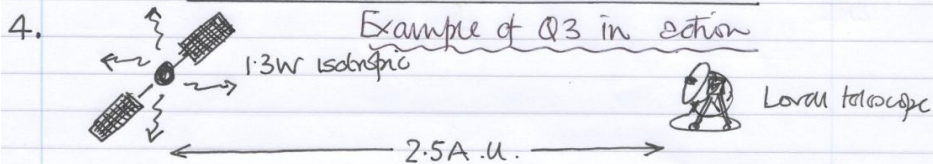 4. Example of Q3 in action
1.3W isotropic
Lovell telescope
2.5 A.U.